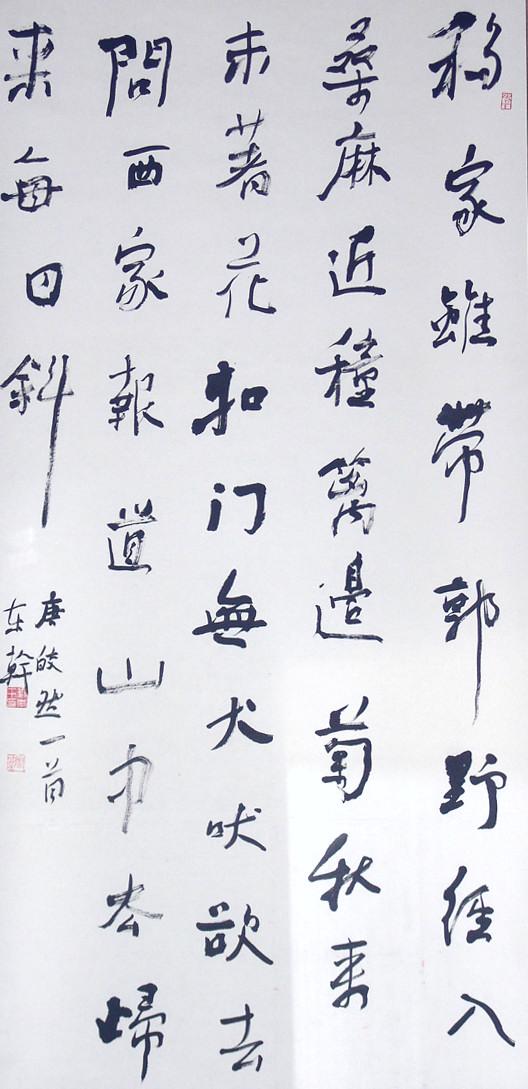 移家雖帶郭野徑入
桑麻近種篱邊菊秋来
未著花扣门無犬吠欲去
問西家報道山中去歸
来每日斜
唐皎然一首
东幹